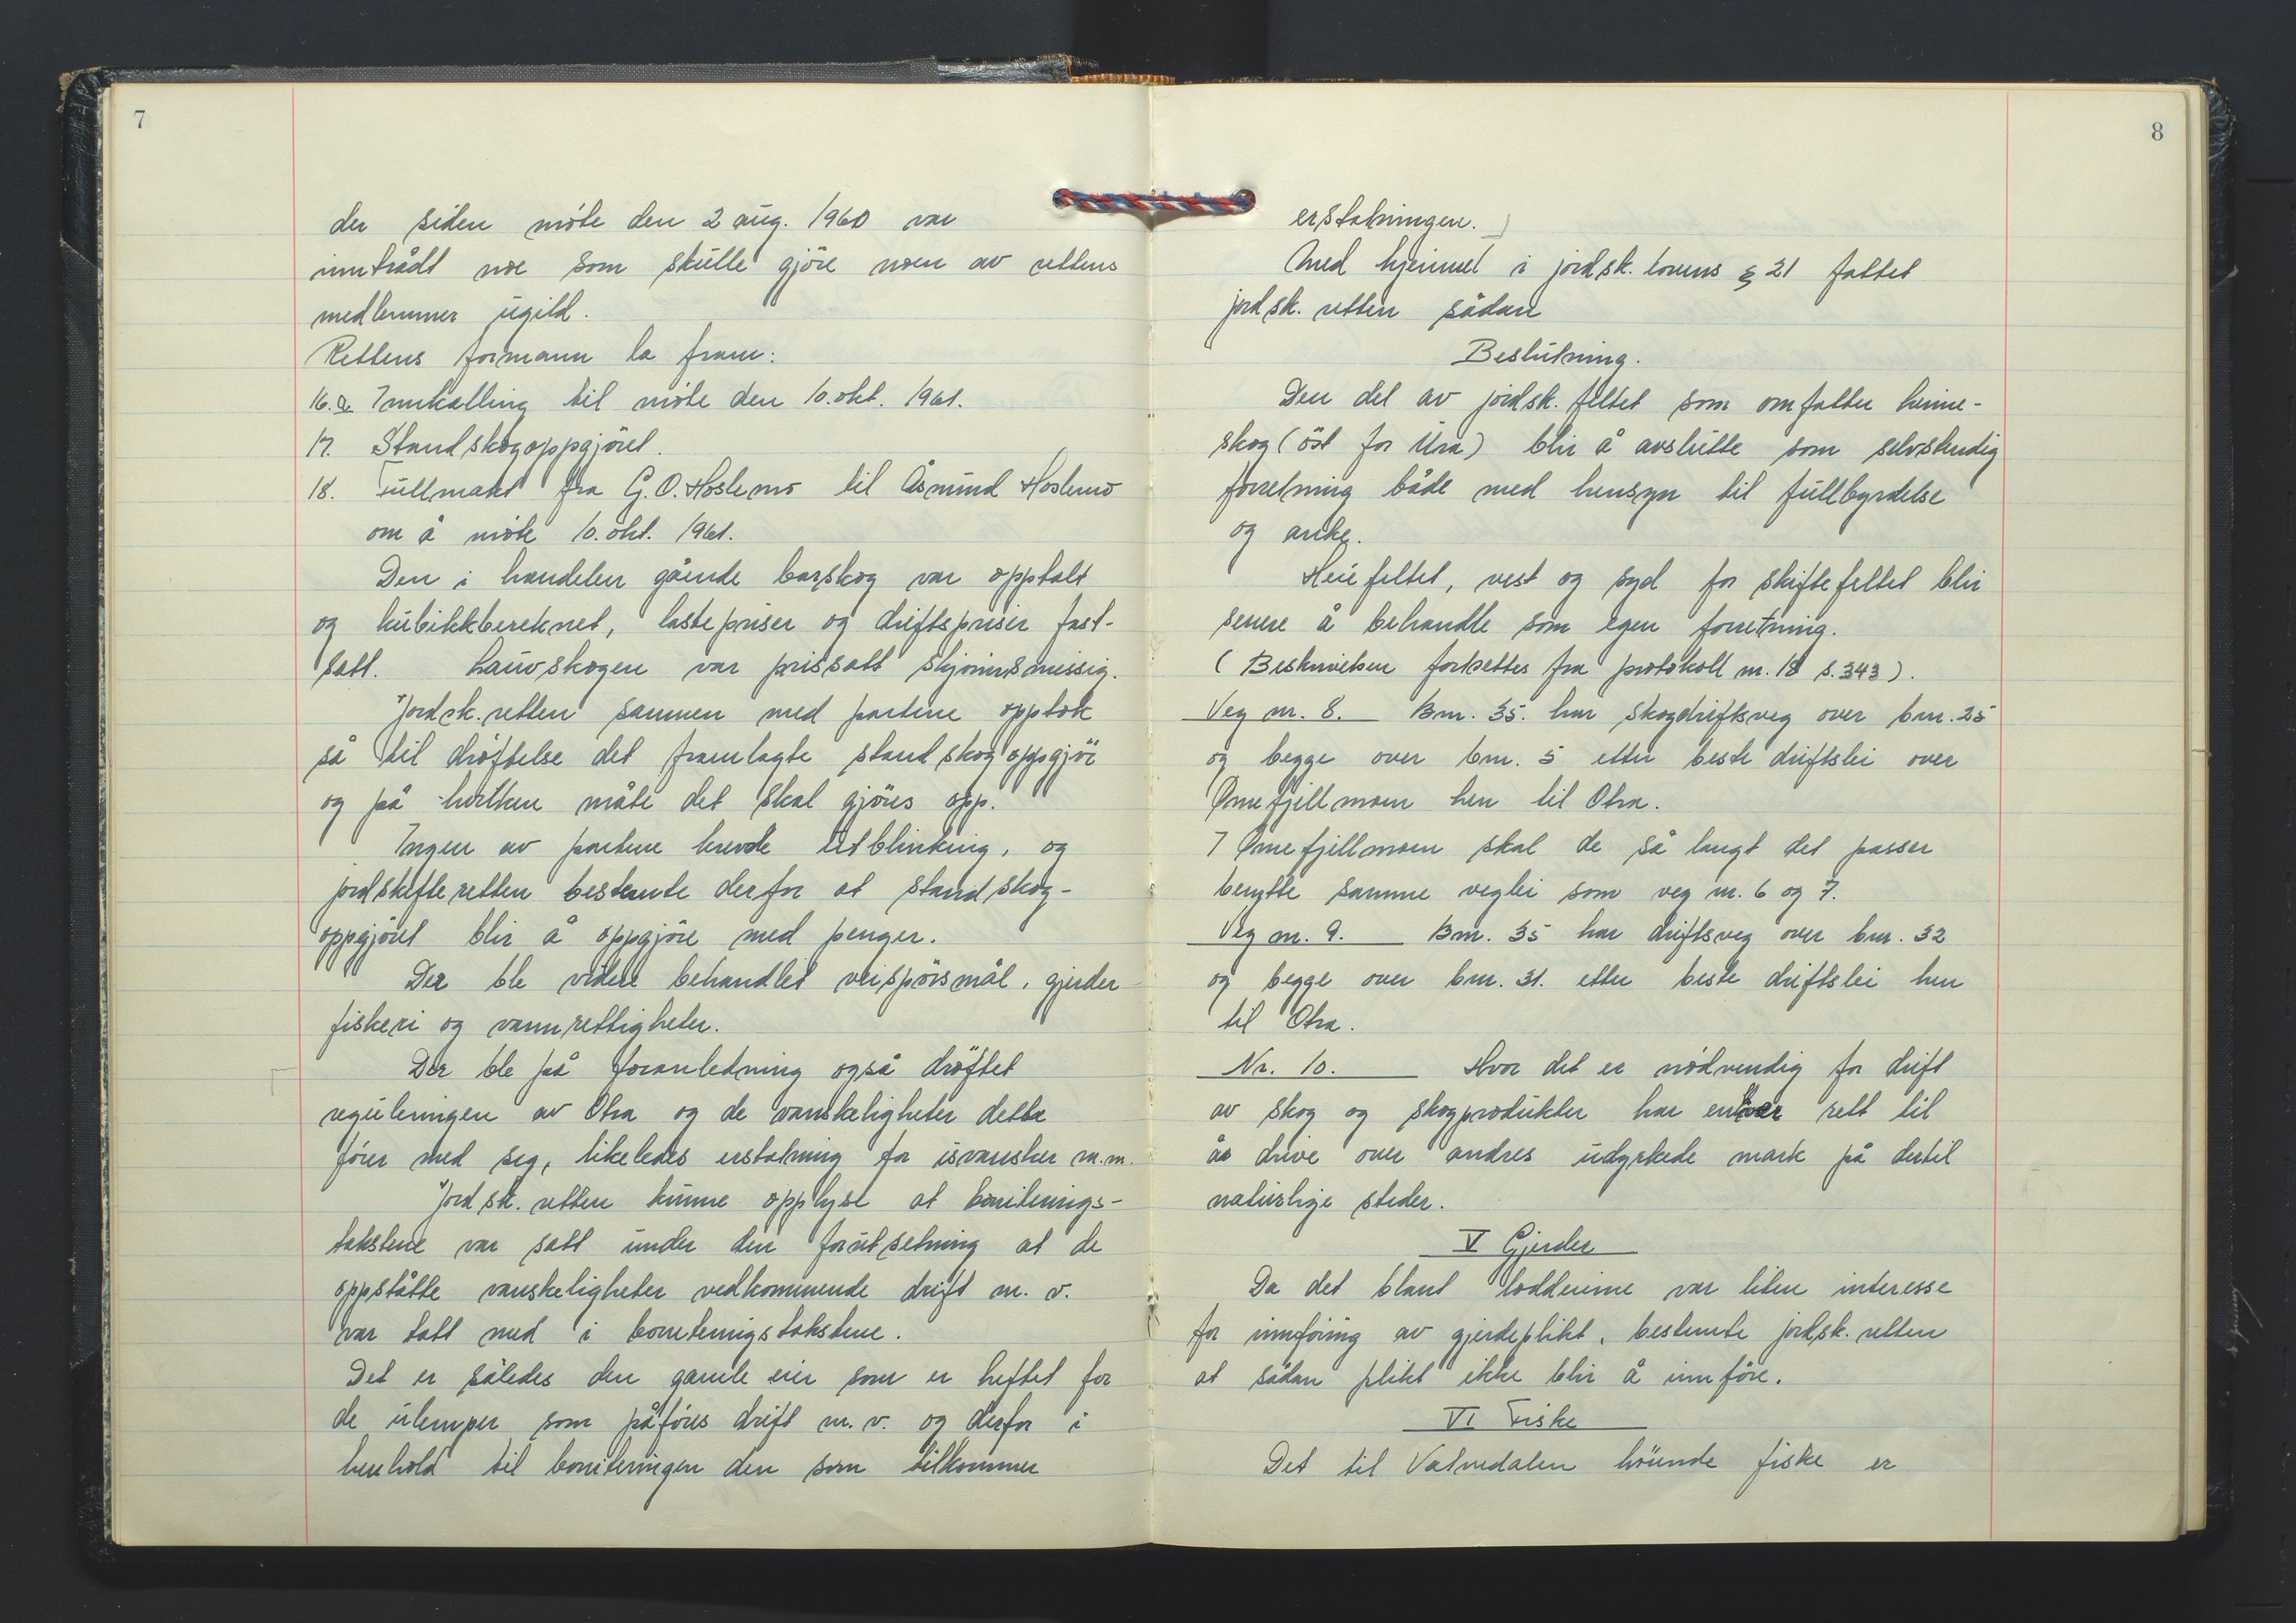 7
der siden møte den 2 aug. 1960 var
inntrådt noe som skulle gjöre noen av rettens
medlemmer ugild.
Rettens formann la fram:
16.a Innkalling til møte den 10. okt. 1961.
17. Standskogoppgjöret.
18. Fullmakt fra G. O. Hoslemo til Åsmund Hoslemo
om å møte 10. okt. 1961.
Den i handelen gående barskog var opptalt
og kubikkbereknet, lastepriser og driftspriser fast-
satt. Lauvskogen var prissatt skjønnsmessig.
Jordsk.retten sammen med partene opptok
så til drøftelse det framlagte standskogoppgjör
og på hvilken måte det skal gjöres opp.
Ingen av partene krevde utblinking, og
jordskifteretten bestemte derfor at standskog-
oppgjöret blir å oppgjöre med penger.
Der ble videre behandlet veispörsmål, gjerder
fiskeri og vannrettigheter.
Der ble på foranledning også dröftet
reguleringen av Otra og de vanskeligheter dette
förer med seg, likeledes erstatning for isvansker m.m.
Jordsk. retten kunne opplyse at boniterings-
takstene var satt under den forutsetning at de
oppståtte vanskeligheter vedkommende drift m. v.
var tatt med i boniteringstakstene.
Det er således den gamle eier som er heftet for
de ulemper som påföres drift m. v. og derfor i
henhold til boniteringen den som tilkommer
8
erstatningen.
Med hjemmel i jordsk. lovens § 21 fattet
jordsk. retten sådan
Beslutning.
Den del av jordsk. feltet som omfatter heime-
skog (öst for Ura) blir å avslutte som selvstendig
forretning både med hensyn til fullbyrdelse
og anke.
Heiefeltet, vest og syd for skiftefeltet blir
senere å behandle som egen forretning.
(Beskrivelsen fortsettes fra protokoll nr. 18 s. 343).
Veg nr. 8. Bnr. 35. har skogdriftsveg over bnr. 25
og begge over bnr. 5 etter beste driftslei over
Ørnefjellmoen hen til Otra.
I Ørnefjellmoen skal de så langt det passer
benytte samme veglei som veg nr. 6 og 7.
Veg nr. 9. Bnr. 35 har driftsveg over bnr. 32
og begge over bnr. 31. etter beste driftslei hen
til Otra.
Nr. 10. Hvor det er nødvendig for drift
av skog og skogprodukter har enhver rett til
å drive over andres udyrkede mark på dertil
naturlige steder.
V Gjerder
Da det blant loddeierne var liten interesse
for innföring av gjerdeplikt, bestemte jordsk. retten
at sådan plikt ikke blir å innföre.
VI Fiske
Det til Vatnedalen hörende fiske er